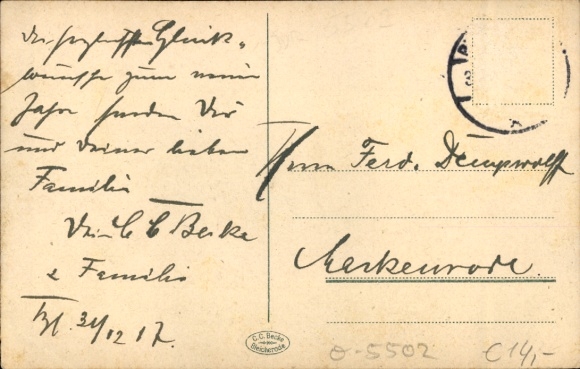 Die herzlichsten Glück-
wünsche zum neuen
Jahre senden Dir
und Deiner lieben
Familie
C C Berke
& Familie
31/12 17.
Herrn Ferd. Dempwolff
Meckenrode.
C.C. Berke
Bleicherode
O-5502
€14,-